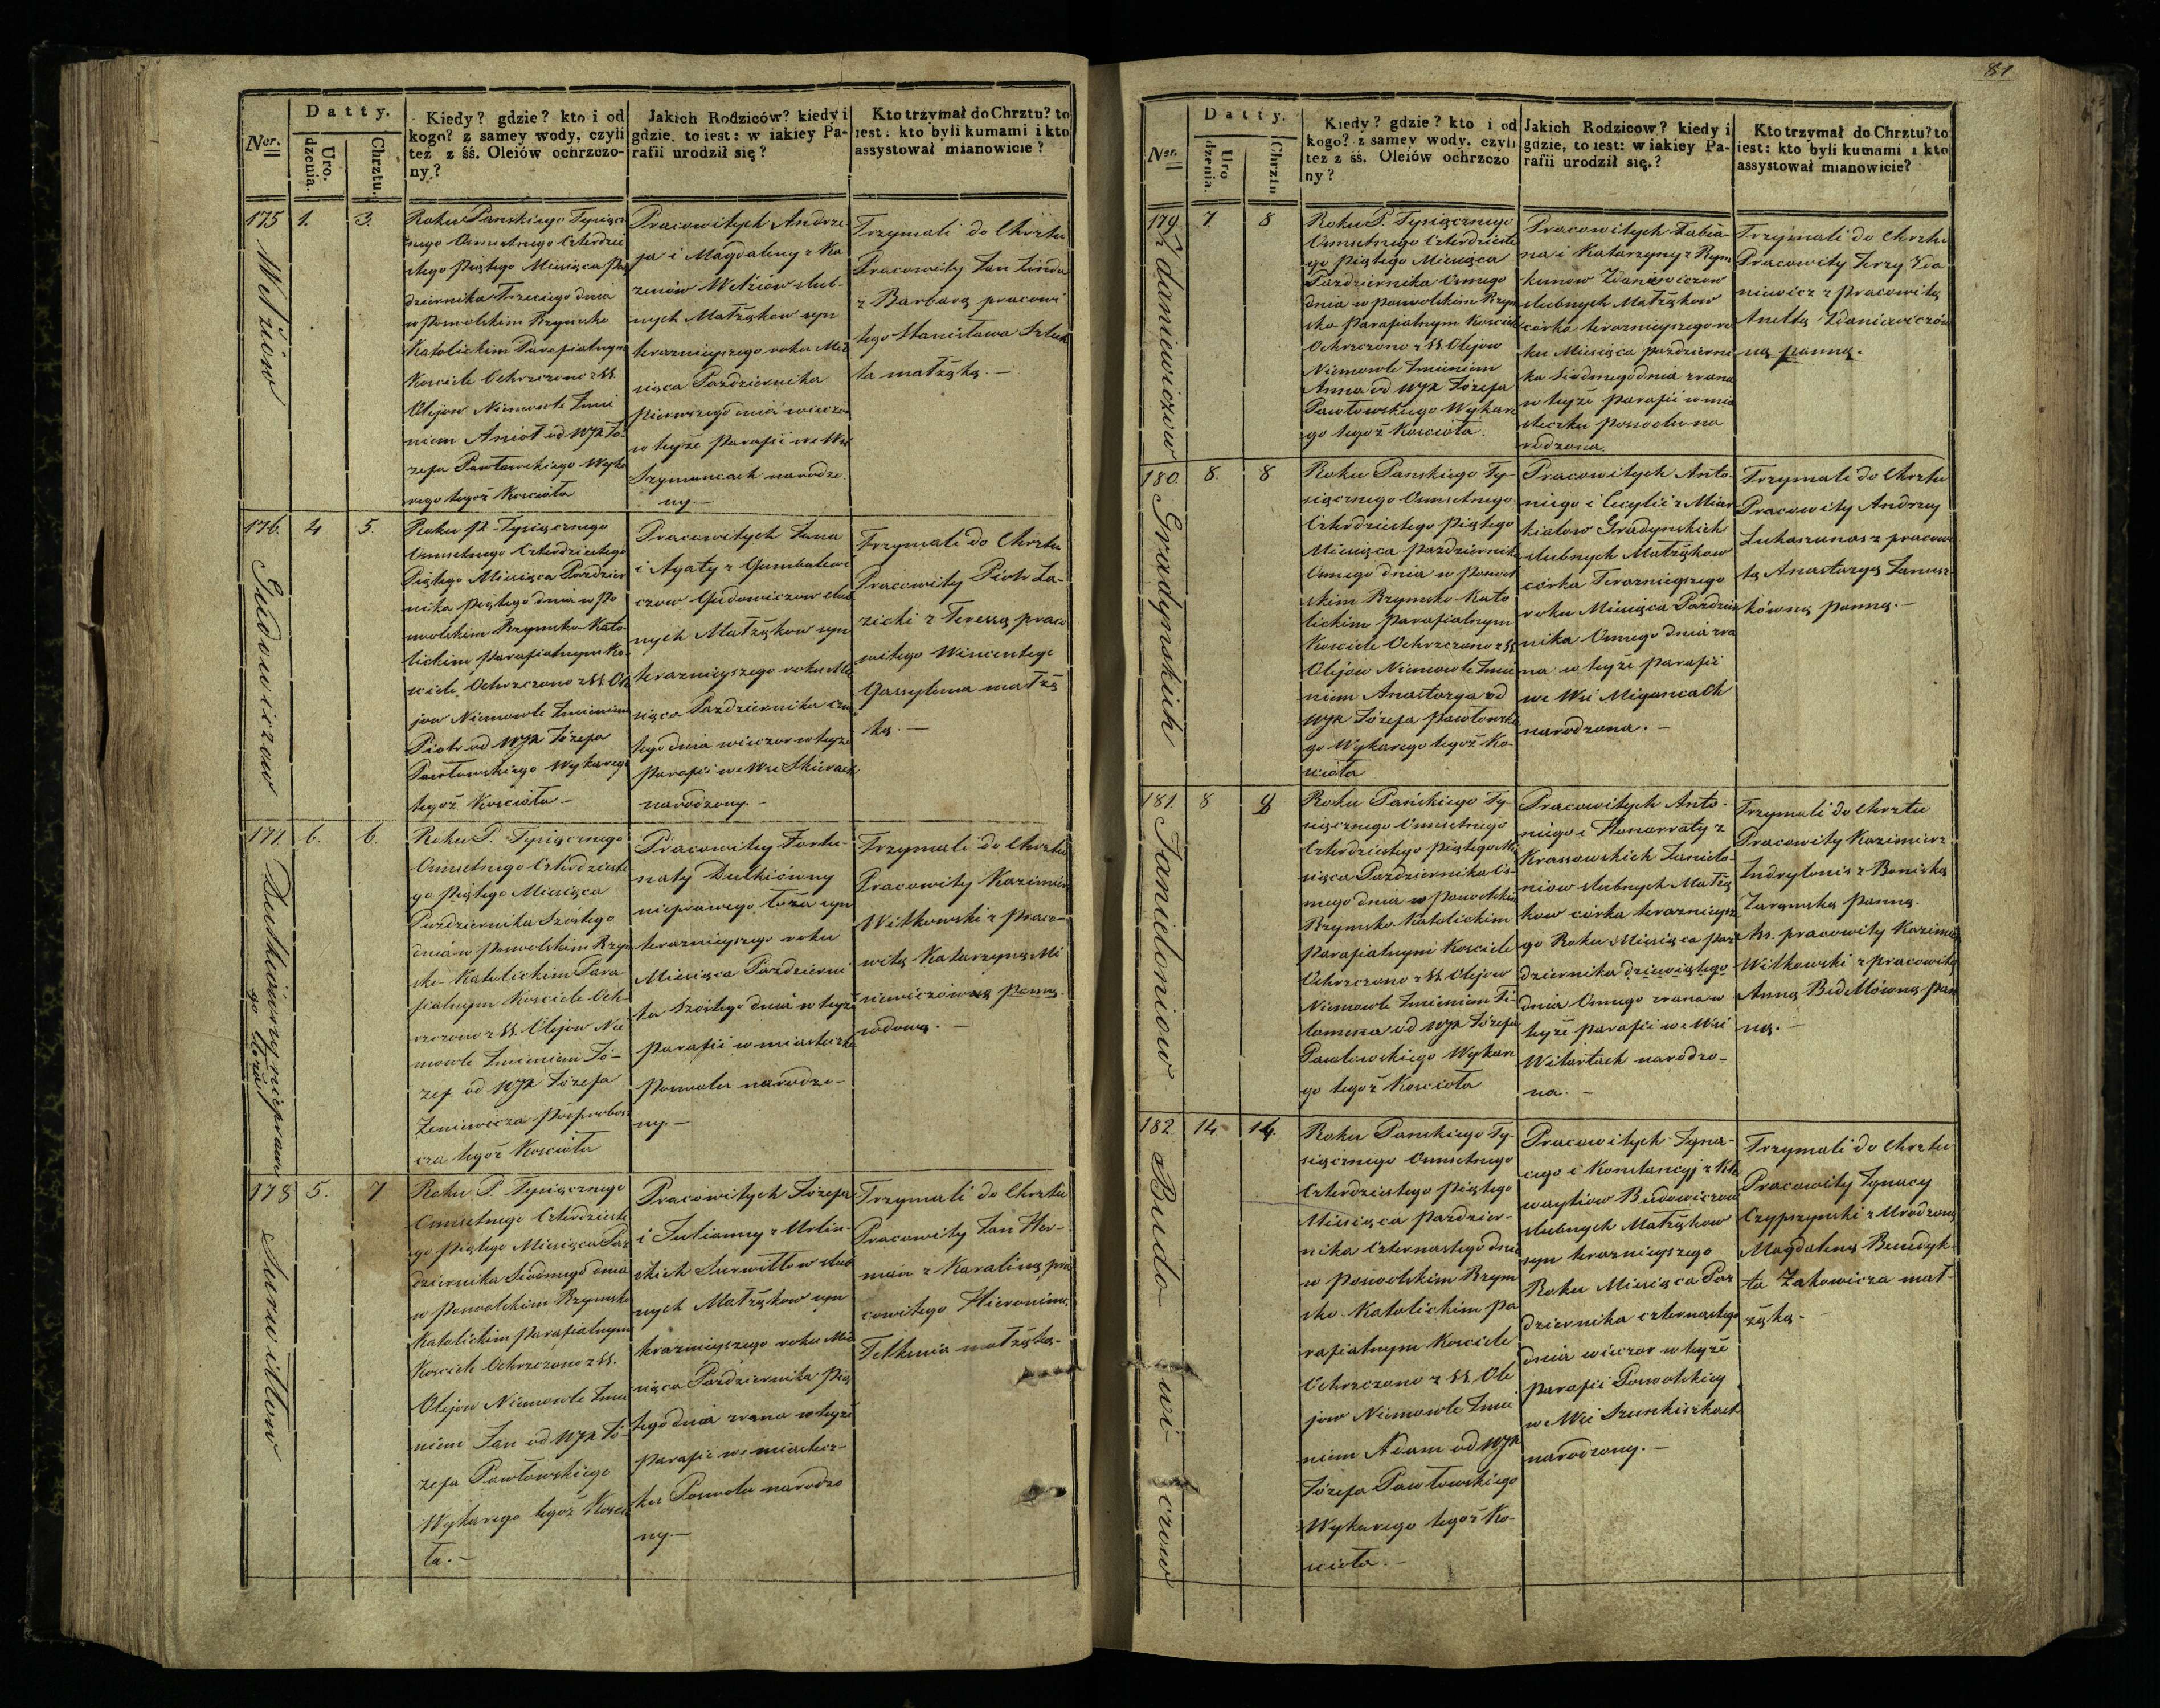 Datty.
Ner.
Uro.
dzenia.
Chrztu.
Kiedy? gdzie? kto i od
kogo? z samey wody, czyli
tez z śś. Oleiów ochrzczo-
ny?
Jakich Rodziców? kiedy i
gdzie, to iest: w iakiey Pa-
rafii urodził się?
Kto trzymał do Chrztu? to
iest: kto byli kumami i kto
assystował mianowicie?
175
1.
3.
Roku Panskiego Tysiącz
nego Osmsetnego Czterdzie
stego piątego Miesiąca Paz
dziernika Trzeciego dnia
w Poswolskim Rzymsko
Katolickim Parafialnym
Kosciele Ochrzczono z SS.
Olejow Niemowle Imie
niem Anioł od WJX Jo-
zefa Pawłowskiego Wyka
rego tegoż Kościoła
Pracowitych Andrze
ja i Magdaleny z Ka
zenów slub-
nych Małżąkow syn
terazniejszego roku Mie
siąca Pazdziernika
Pierwszego dnia wieczor
w teyże parafii we Wsi
Szymancach narodzo
ny.—
Trzymali do Chrztu
Pracowity Jan
z Barbarą pracowi
tego Stanisława
ta małżąką.—
176.
Gudowiczow
4
5.
Roku P. Tysiącznego
Osmsetnego Czterdziestego
Piątego Miesiąca Pazdzier
nika piątego dnia w Po
swolskim Rzymsko Kato-
lickim parafialnym Ko-
sciele Ochrzczono z SS. Ole
jow Niemowle Imieniem
Piotr od WJX Józefa
Pawłowskiego Wykarego
tegoż Kościoła—
Pracowitych Jana
i Agaty z Gumbalewi
czow Gudowiczow slub
nych Małżąkow syn
terazniejszego roku Mie
siąca Pazdziernika czwar
tego dnia wieczor w teyże
parafii we Wsi Skierach
narodzony.—
Trzymali do Chrztu
Pracowity Piotr Ła-
zicki z Teressą praco
witego Wincentego
małżą
ką.—
177.
Dulkiówny nieprawe
go łoża
6.
6.
Roku P. Tysiącznego
Osmsetnego Czterdzieste
go piątego Miesiąca
Pazdziernika Szostego
dnia w poswolskim Rzym
sko-Katolickim Para
fialnym Kosciele Och-
rzczono z SS. Olejow Nie
mowle Imieniem Jó-
zef od WJX Józefa
Zeniewicza
cza tegoż Kościoła
Pracowitey Fortu-
naty Dulkiówny
nieprawego łoża syn
terazniejszego roku
Miesiąca Pazdzierni
ka Szostego dnia w teyże
parafii w miasteczku
Poswolu narodzo-
ny.—
Trzymali do Chrztu
Pracowity Kazimierz
Witkowski z Praco-
witą Katarzyną Mi
panną
wdową.—
178
Surwiłłow
5.
7
Roku P. Tysiącznego
Osmsetnego Czterdzieste
go piątego Miesiąca Paz
dziernika Siodmego dnia
w Poswolskim Rzymsko
Katolickim parafialnym
Kosciele Ochrzczono z SS.
Olejow Niemowle Imie
niem Jan od WJX Jó-
zefa Pawłowskiego
Wykarego tegoż Kościo
ła.—
Pracowitych Józefa
i Julianny z Urbin-
skich Surwiłłow slub
nych Małżąkow syn
terazniejszego roku Mie
siąca Pazdziernika pią
tego dnia zrana w teyże
parafii we miastecz-
ku Poswolu narodzo
ny.—
Trzymali do Chrztu
Pracowity Jan Her-
man z Karoliną pra
cowitego Hieronima
małżąką.
81
Datty.
Ner.
Uro
dzenia.
Chrztu
Kiedy? gdzie? kto i od
kogo? z samey wody, czyli
tez z śś. Oleiów ochrzczo
ny?
Jakich Rodzicow? kiedy i
gdzie, to iest: w iakiey Pa-
rafii urodził się.?
Kto trzymał do Chrztu? to
iest: kto byli kumami i kto
assystował mianowicie?
179.
Zdaniewiczow
7
8
Roku P. Tysiącznego
Osmsetnego Czterdzieste
go piątego Miesiąca
Pazdziernika Osmego
dnia w poswolskim Rzym
sko-Parafialnym Kosciele
Ochrzczono z SS. Olejow
Niemowle Imieniem
Anna od WJX Józefa
Pawłowskiego Wykare
go tegoż Kościoła.
Pracowitych Fabia-
na i Katarzyny z Rym
kunow Zdaniewiczow
slubnych Małżąkow
córka terazniejszego ro
ku Miesiąca pazdzierni
ka Siodmego dnia zrana
w teyże parafii w mia
steczku poswolu na
rodzona.
Trzymali do Chrztu
Pracowity Jerzy Zda
niewicz z pracowitą
Anettą Zdaniewiczów
ną panną.
180.
Gradynskich
8.
8
Roku Panskiego Ty-
siącznego Osmsetnego
Czterdziestego piątego
Miesiąca pazdziernika
Osmego dnia w poswol
skim Rzymsko-Kato
lickim parafialnym
Kosciele Ochrzczono z SS
Olejow Niemowle Imie
niem Anastazya od
WJX Józefa Pawłowskie
go Wykarego tegoż Ko-
scioła
Pracowitych Anto-
niego i Cecylii z Miar
kiałow Gradynskich
slubnych Małżąkow
córka Terazniejszego
roku Miesiąca Pazdzier
nika Osmego dnia zra
na w teyże parafii
we Wsi Migancach
narodzona.—
Trzymali do Chrztu
Pracowity Andrzey
Łukaszunas z pracowi
tą Anastazyą Janusz-
kówną panną.—
181.
Janieloniow
8
8
Roku Pańskiego Ty-
siącznego Osmsetnego
Czterdziestego piątego Mie
siąca Pazdziernika Os-
mego dnia w poswolskim
Rzymsko-Katolickim
Parafialnym Kosciele
Ochrzczono z SS. Olejow
Niemowle Imieniem Fi-
lomena od WJX Józefa
Pawłowskiego Wykare
go tegoż Kościoła
Pracowitych Anto-
niego i Honorraty z
Krassowskich Janielo-
niow slubnych Małżą
kow córka terazniejsze
go Roku Miesiąca paz
dziernika dziewiątego
dnia Osmego zrana w
teyże parafii we Wsi
Witartach narodzo-
na.—
Trzymali do Chrztu
Pracowity Kazimierz
Indrylonis z Bonisią
Zaramską panną.
Ass. pracowity Kazimierz
Witkowski z pracowitą
Anną pan
ną.—
182.
Budowiczow
14
14.
Roku Panskiego Ty-
siącznego Osmsetnego
Czterdziestego piątego
Miesiąca pazdzier-
nika Czternastego dnia
w poswolskim Rzym
sko-Katolickim pa
rafialnym Kosciele
Ochrzczono z SS. Ole
jow Niemowle Imie
niem Adam od WJX
Józefa Pawłowskiego
Wykarego tegoż Ko-
scioła.—
Pracowitych Igna-
cego i Konstancyj z
Budowiczow
slubnych Małżąkow
syn terazniejszego
Roku Miesiąca Paz
dziernika czternastego
dnia wieczor w teyże
parafii Poswolskiey
we Wsi Szunkiszkach
narodzony.—
Trzymali do Chrztu
Pracowity Ignacy
Czypszynski z Urodzoną
Magdaleną Benedyk-
ta Zakowicza mał-
żąką.